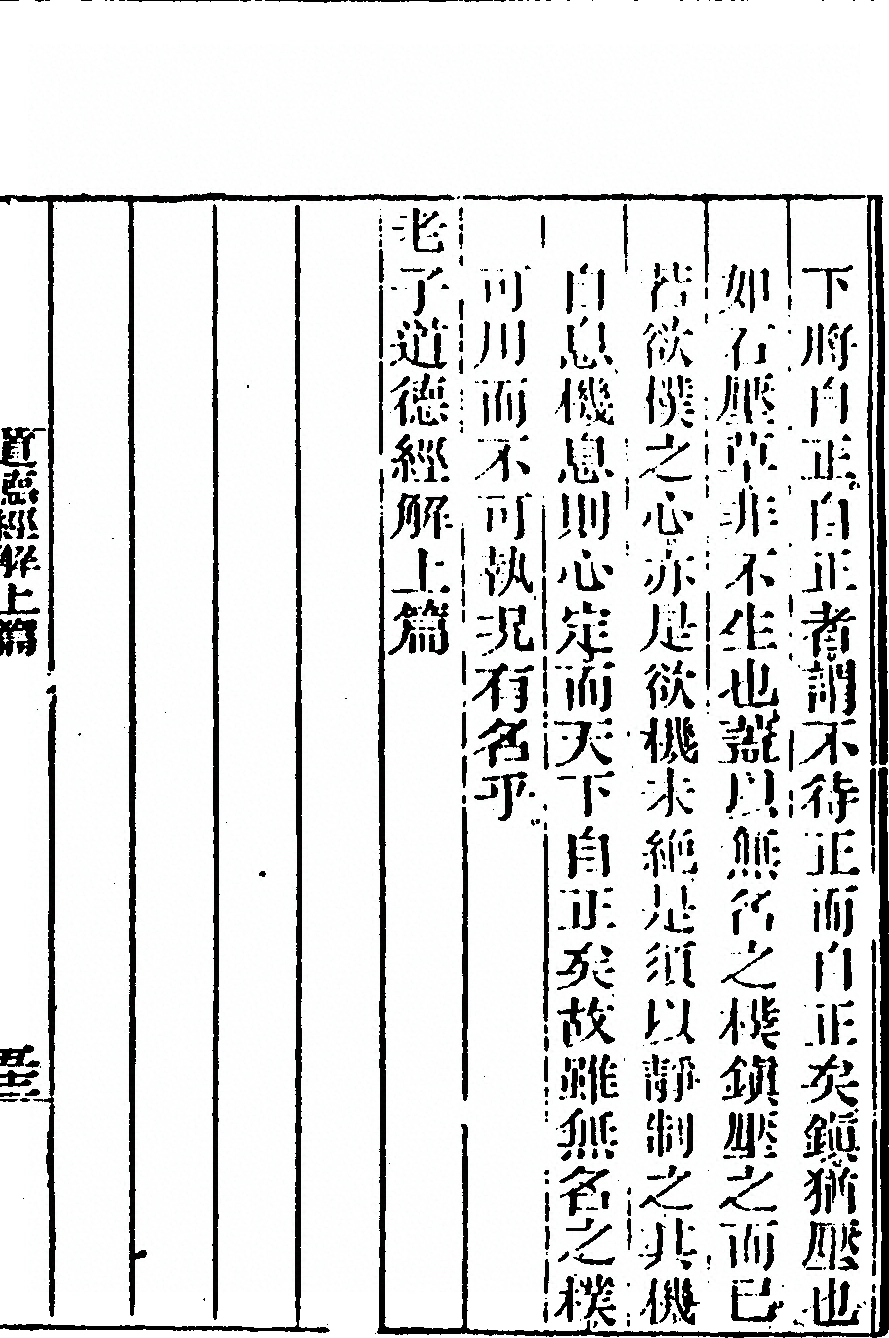 下將自正自正者謂不待正而自正矣鎮猶壓也
如石壓草非不生也葢以無名之樸鎮壓之而已
若欲樸之心亦是欲機未絕是須以靜制之其機
自息機息則心定而天下自正矣故雖無名之樸
可用而不可執况有名乎
老子道德經解上篇
道德經解上篇